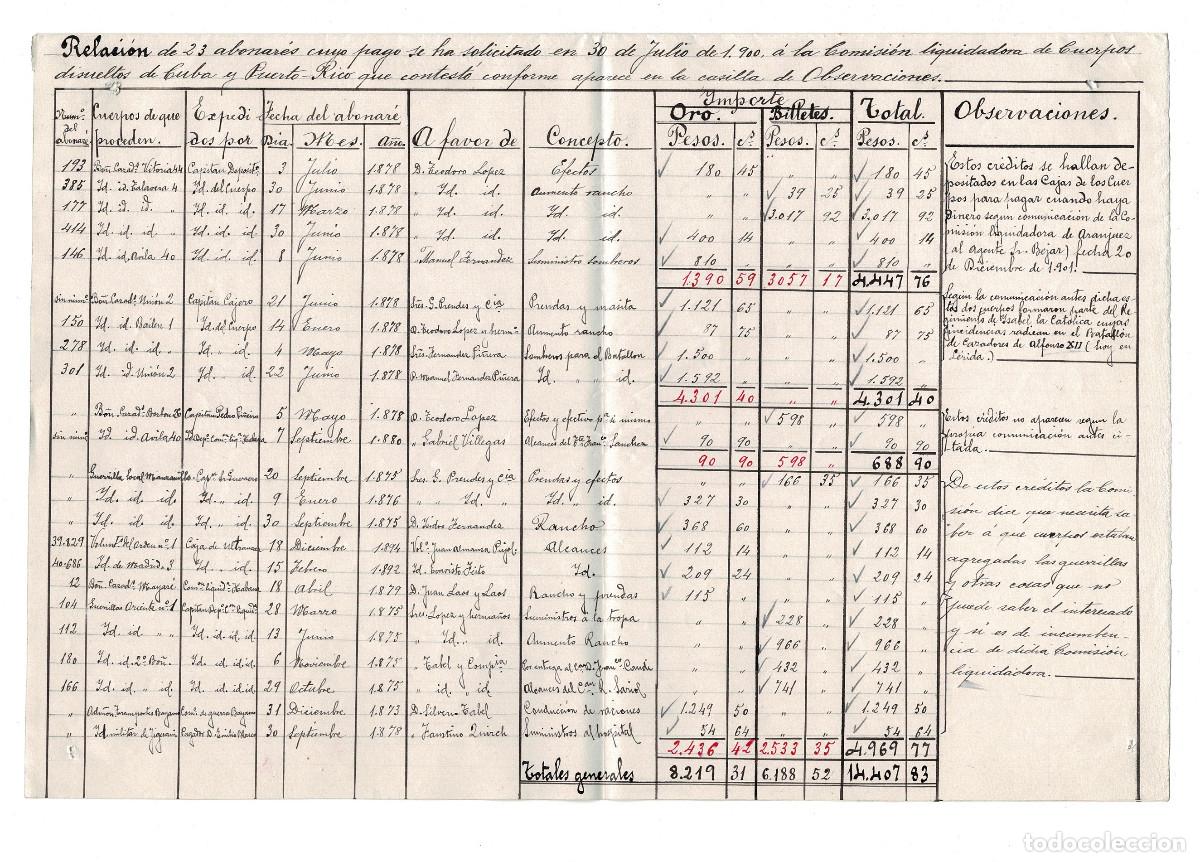 Relación de 23 abonarés cuyo pago se ha solicitado en 30 de Julio de 1.900, á la Comisión liquidadora de Cuerpos
disueltos de Cuba y Puerto-Rico que contestó conforme aparece en la casilla de Observaciones.
Núm.º del abonaré Cuerpos de que proceden. Expedidos por Fecha del abonaré Día. Mes. Año. A favor de Concepto. Importe Oro. Pesos. c.s Billetes. Pesos. c.s Total. Pesos. c.s Observaciones.
193 Bón. Cazad.s Vitoria 44 Capitan Deposit.º 3 Julio 1.878 D. Teodoro Lopez Efectos 180 45 " " 180 45
385 Id. id. Talavera 4 Id. del Cuerpo 30 Junio 1.878 " Id. id. Aumento rancho " " 39 25 39 25
177 Id. id. id. " Id. id. id. 17 Marzo 1.878 " Id. id. Id. id. " " 3.017 92 3.017 92
414 Id. id. id. " Id. id. id. 30 Junio 1.878 " Id. id. Id. id. 400 14 " " 400 14
146 Id. id. Avila 40 Id. id. id. 8 Junio 1.878 " Manuel Fernandez Suministro sombreros 810 " " " 810 "
1.390 59 3.057 17 4.447 76
Estos créditos se hallan de-
positados en las Cajas de los Cuer-
pos para pagar cuando haya
dinero segun comunicación de la Co-
misión liquidadora de Aranjuez
al Agente Sr. Bejar) fecha 20
de Diciembre de 1.901.
sin núm.º Bón. Cazad.s Unión 2 Capitan Cajero 21 Junio 1.878 Sres. G. Prendes y Cía Prendas y manta 1.121 65 " " 1.121 65
150 Id. id. Bailen 1 Id. del Cuerpo 14 Enero 1.878 D. Teodoro Lopez Aumento rancho 87 75 " " 87 75
278 Id. id. id. " Id. " id. 4 Mayo 1.878 Sres. Fernandez Piñera Sombreros para el Batallon 1.500 " " " 1.500 "
301 Id. id. Unión 2 Id. " id. 22 Junio 1.878 D. Manuel Fernandez Piñera Id. " " id. 1.592 " " " 1.592 "
4.301 40 4.301 40
Segun la comunicación antes dicha es-
tos dos cuerpos formaron parte del Re-
gimiento de Isabel la Católica cuyas
incidencias radican en el Batallón
de Cazadores de Alfonso XII (hoy en
Lérida.)
" Bón. Cazad.s Borbon 20 Capitan Pedro 5 Mayo 1.878 D. Teodoro Lopez Efectos y efectivo p.ª si mismo " " 598 " 598 "
sin núm.º Id. id. Avila 40 7 Septiembre 1.880 " Gabriel Villegas Alcances del Sanchez 90 90 " " 90 90
90 90 598 " 688 90
Estos créditos no aparecen segun la
propia comunicación antes ci-
tada.
" Guerrilla Local Manzanillo 20 Septiembre 1.875 Sres. G. Prendes y Cía Prendas y efectos " " 166 35 166 35
" Id. id. id. Id. " id. 9 Enero 1.876 " " Id. id. Id. " id. 327 30 " " 327 30
" Id. id. id. Id. " id. 30 Septiembre 1.875 D. Isidro Fernandez Rancho 368 60 " " 368 60
39.829 Volunt.s del Orden n.º 1 Caja de Ultramar 18 Diciembre 1.894 Vol.º Juan Almansa Alcances 112 14 " " 112 14
40.686 Id. de Madrid 3 Id. " id. 15 Febrero 1.892 Id. Evaristo Id. 209 24 " " 209 24
12 Bón. Cazad.s Mayari Com.n Liquid.ª Habana 18 Abril 1.879 D. Juan Laos y Laos Rancho y prendas 115 " " " 115 "
104 Guerrillas Oriente n.º 1 28 Marzo 1.875 Sres. Lopez y hermanos Suministros á la tropa " " 228 " 228 "
112 Id. id. " " Id. id. id. id. 13 Junio 1.875 " Id. " id. Aumento Rancho " " 966 " 966 "
180 Id. id. 2.º Bón. Id. id. id. id. 6 Noviembre 1.875 " Tabel y Compía " " 432 " 432 "
166 Id. id. id. " Id. id. id. id. 29 Octubre 1.875 " id. " id. Alcances del " " 741 " 741 "
" Transportes Bayamo Comis.º de guerra Bayamo 31 Diciembre 1.873 D. Silverio Tabel Conducción de raciones 1.249 50 " " 1.249 50
" Id. militar de Jiguani 30 Septiembre 1.878 " Faustino Quirch Suministros al hospital 54 64 " " 54 64
2.436 42 2.533 35 4.969 77
De estos créditos la Comi-
sión dice que necesita sa-
ber á que cuerpos estaban
agregadas las guerrillas
y otras cosas que no
puede saber el interesado
y si es de incumben-
cia de dicha Comisión
liquidadora.
Totales generales 8.219 31 6.188 52 14.407 83
todocoleccion